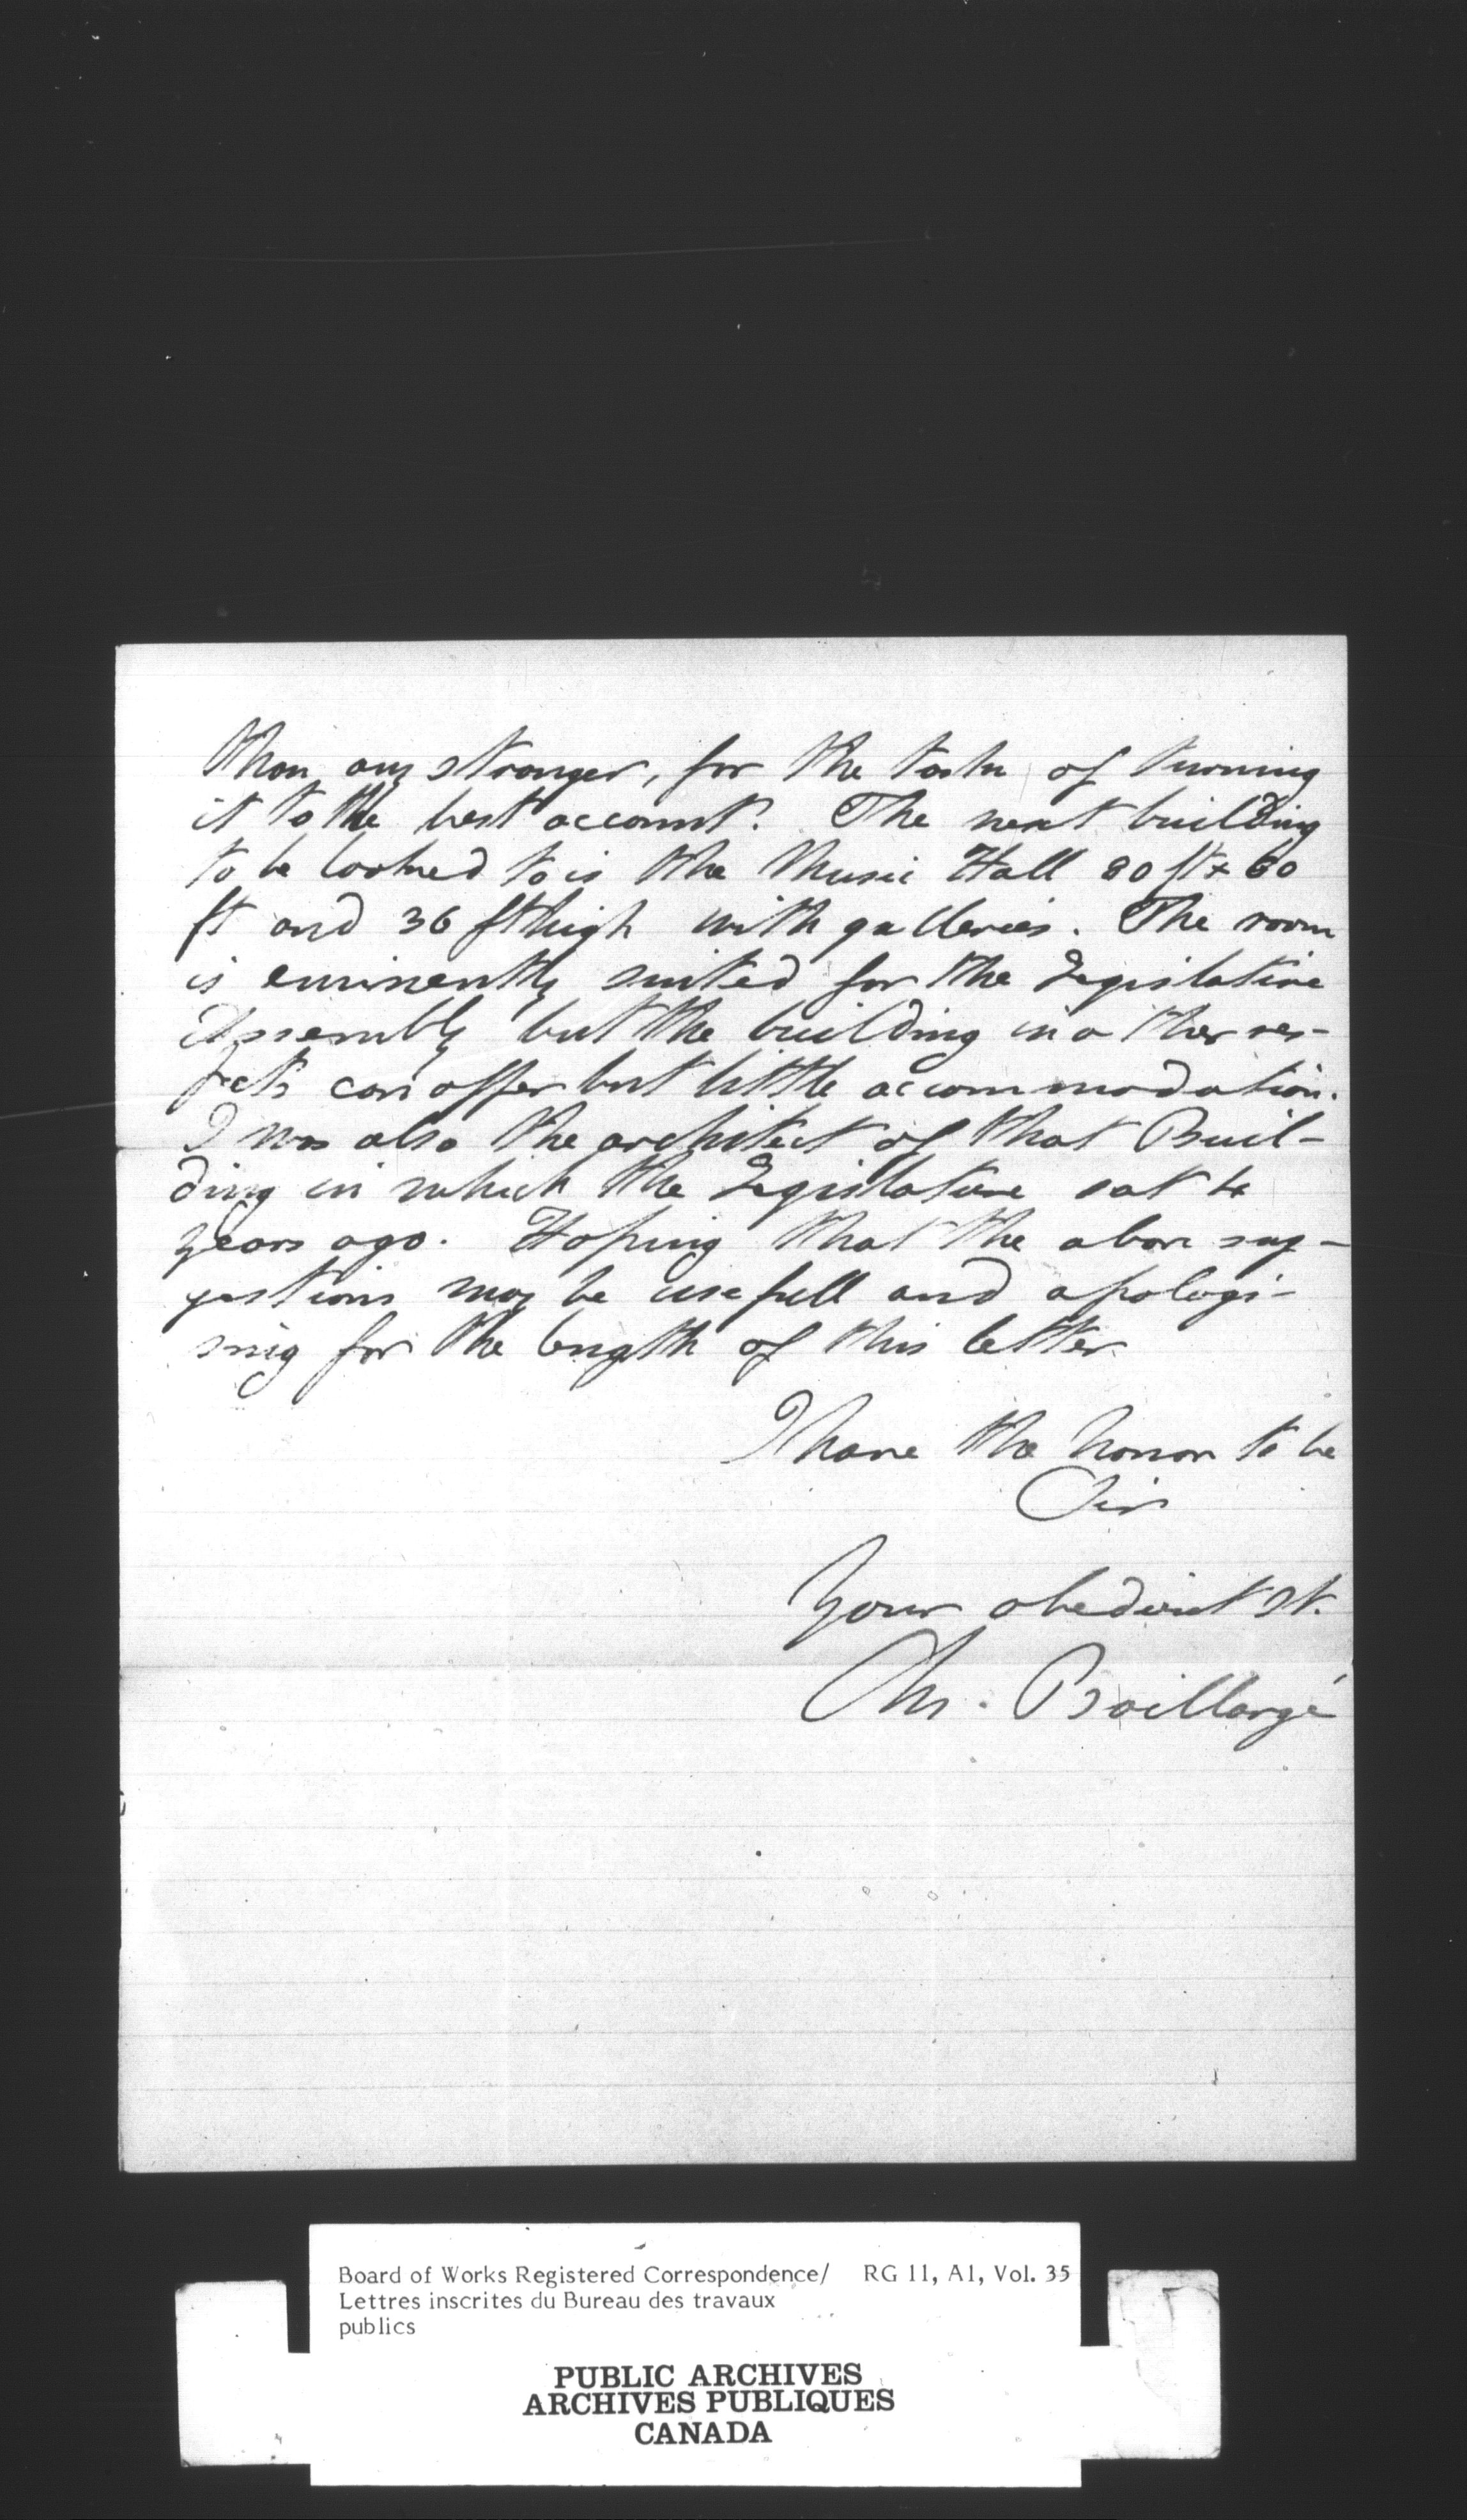 than any stranger, for the task of turning
it to the best account. The next building
to be looked to is the Music Hall 80 ft x 60
ft and 36 ft high with galleries. The room
is eminently suited for the Legislative
Assembly but the building in other res-
pects can offer but little accommodation.
I was also the architect of that Buil-
ding in which the Legislature sat 4
years ago. Hoping that the above sug-
gestions may be usefull and apologi-
sing for the length of this letter
I have the honor to be
Sir
Your obedient st.
Chs. Baillargé
Board of Works Registered Correspondence/ RG 11, A1, Vol. 35
Lettres inscrites du Bureau des travaux
publics
PUBLIC ARCHIVES
ARCHIVES PUBLIQUES
CANADA